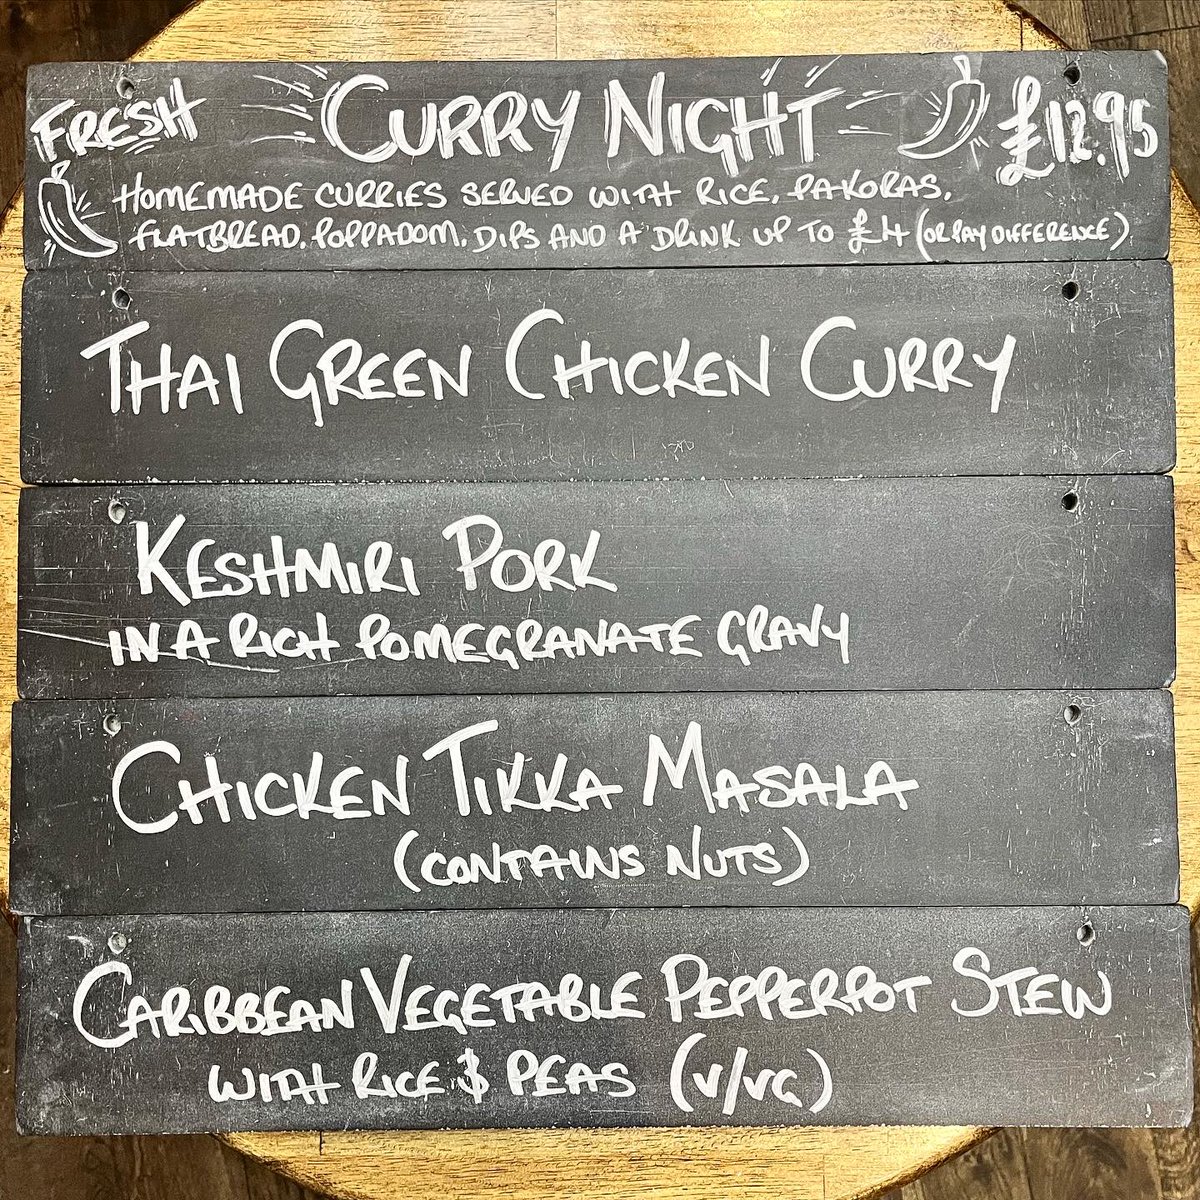 FRESH CURRY NIGHT £12.95
HOMEMADE CURRIES SERVED WITH RICE, PAKORAS,
FLATBREAD, POPPADOM, DIPS AND A DRINK UP TO £4 (OR PAY DIFFERENCE)
THAI GREEN CHICKEN CURRY
KESHMIRI PORK
IN A RICH POMEGRANATE GRAVY
CHICKEN TIKKA MASALA
(CONTAINS NUTS)
CARIBBEAN VEGETABLE PEPPERPOT STEW
WITH RICE & PEAS (V/VG)